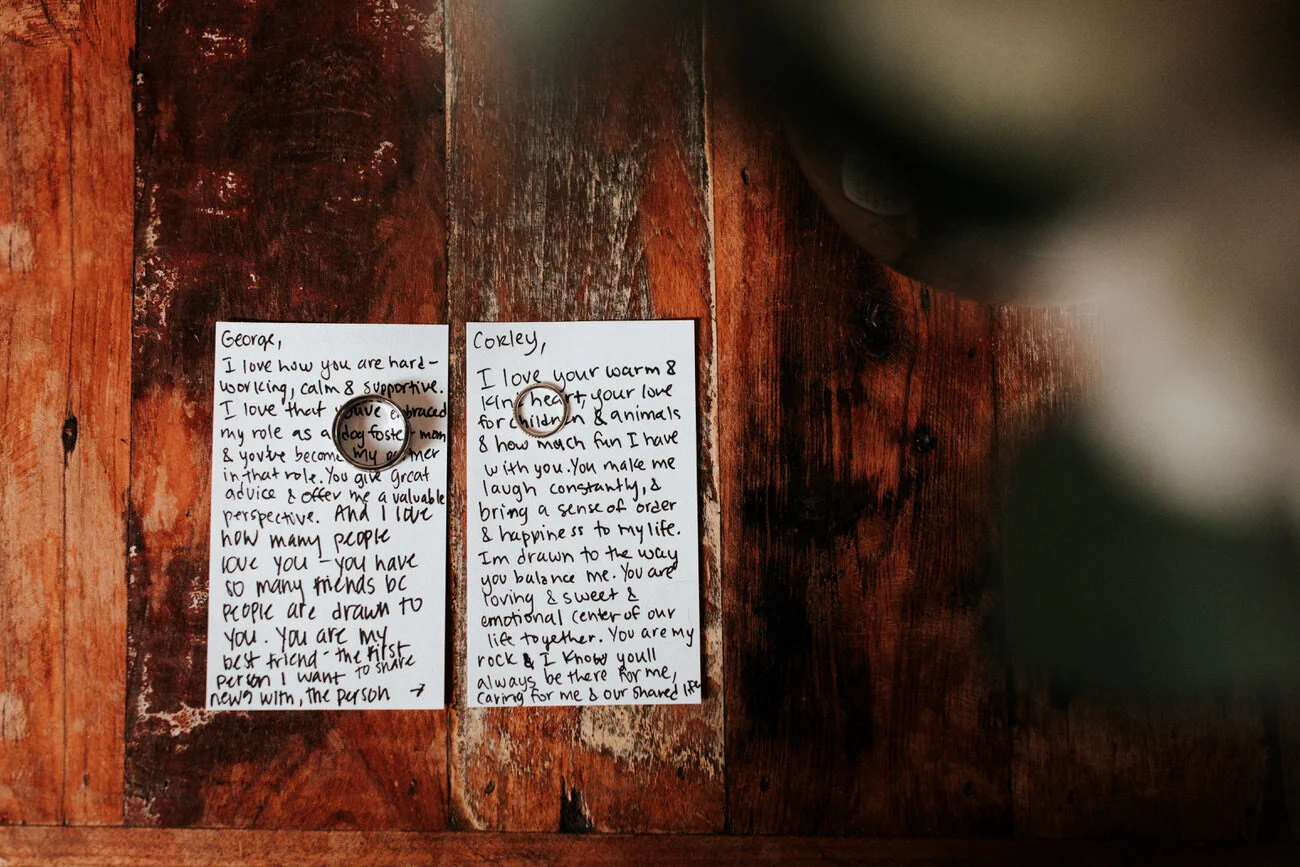 George,
I love how you are hard-
working, calm & supportive.
I love that you've embraced
my role as a dog foster mom
& you've become my partner
in that role. You give great
advice & offer me a valuable
perspective. And I love
how many people
love you - you have
so many friends bc
people are drawn to
you. You are my
best friend - the first
person I want to share
news with, the person →
Corley,
I love your warm &
kind heart, your love
for children & animals
& how much fun I have
with you. You make me
laugh constantly, &
bring a sense of order
& happiness to my life.
Im drawn to the way
you balance me. You are
loving & sweet &
emotional center of our
life together. You are my
rock & I know youll
always be there for me,
caring for me & our shared life